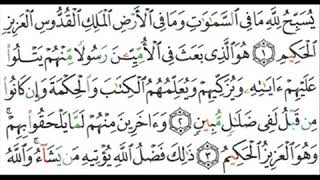 يُسَبِّحُ لِلَّهِ مَا فِى ٱلسَّمَٰوَٰتِ وَمَا فِى ٱلْأَرْضِ ٱلْمَلِكِ ٱلْقُدُّوسِ ٱلْعَزِيزِ
ٱلْحَكِيمِ ١ هُوَ ٱلَّذِى بَعَثَ فِى ٱلْأُمِّيِّۦنَ رَسُولًا مِّنْهُمْ يَتْلُوا۟
عَلَيْهِمْ ءَايَٰتِهِۦ وَيُزَكِّيهِمْ وَيُعَلِّمُهُمُ ٱلْكِتَٰبَ وَٱلْحِكْمَةَ وَإِن كَانُوا۟
مِن قَبْلُ لَفِى ضَلَٰلٍ مُّبِينٍ ٢ وَءَاخَرِينَ مِنْهُمْ لَمَّا يَلْحَقُوا۟ بِهِمْ ۚ
وَهُوَ ٱلْعَزِيزُ ٱلْحَكِيمُ ٣ ذَٰلِكَ فَضْلُ ٱللَّهِ يُؤْتِيهِ مَن يَشَآءُ ۚ وَٱللَّهُ